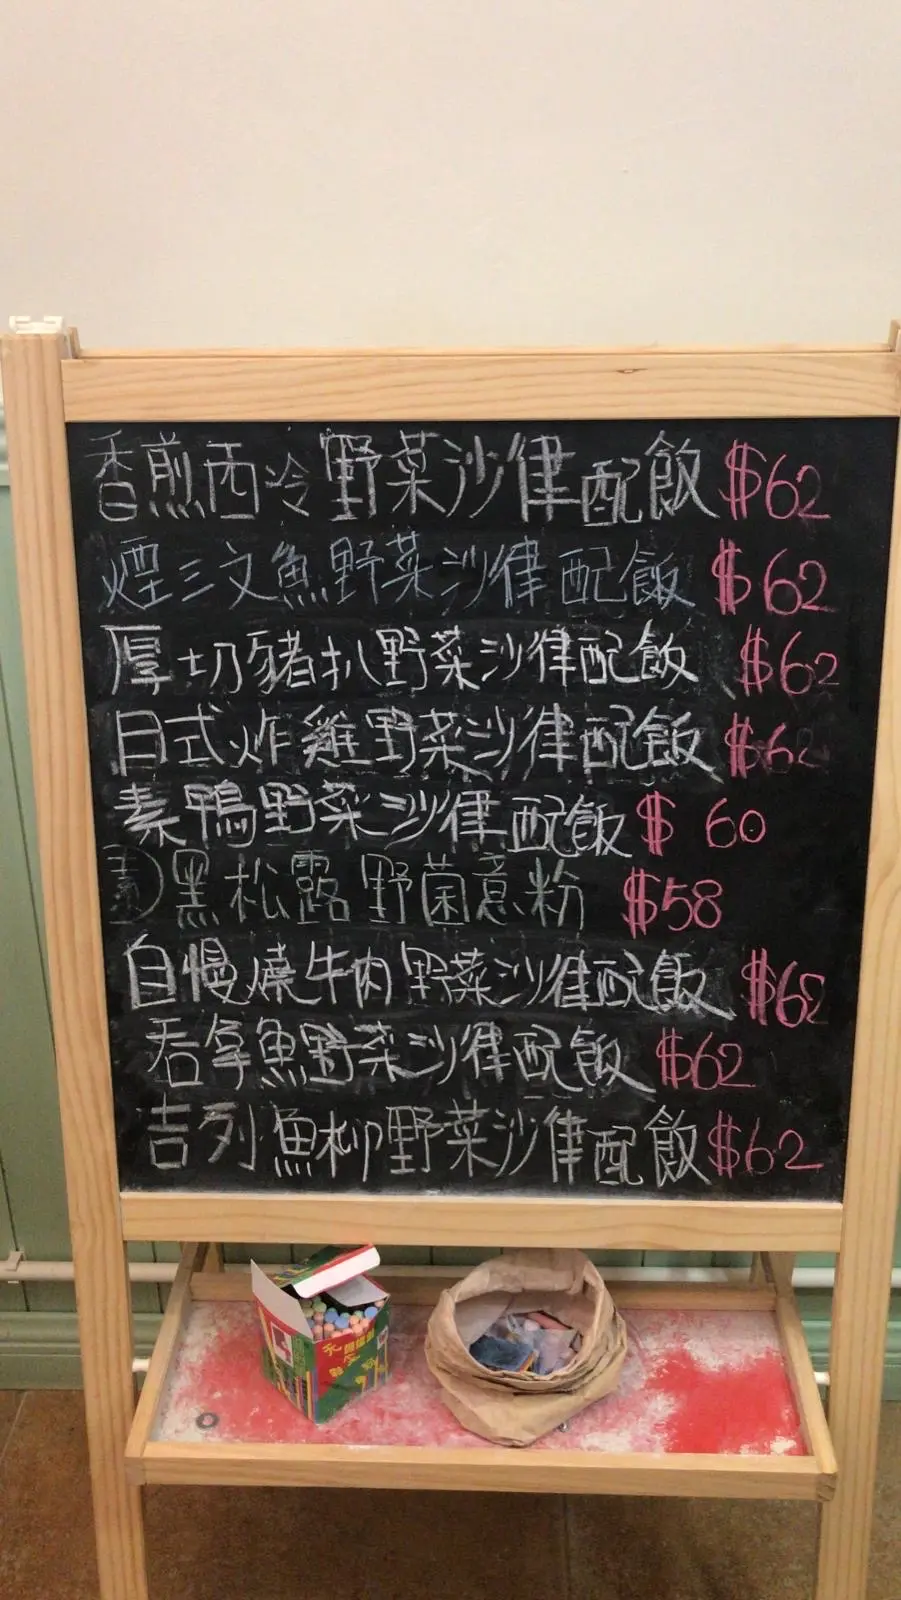 香煎西冷野菜沙律配飯 $62
煙三文魚野菜沙律配飯 $62
厚切豬扒野菜沙律配飯 $62
日式炸雞野菜沙律配飯 $62
素鴨野菜沙律配飯 $ 60
素 黑松露野菌意粉 $58
自慢燒牛肉野菜沙律配飯 $62
吞拿魚野菜沙律配飯 $62
吉列魚柳野菜沙律配飯 $62